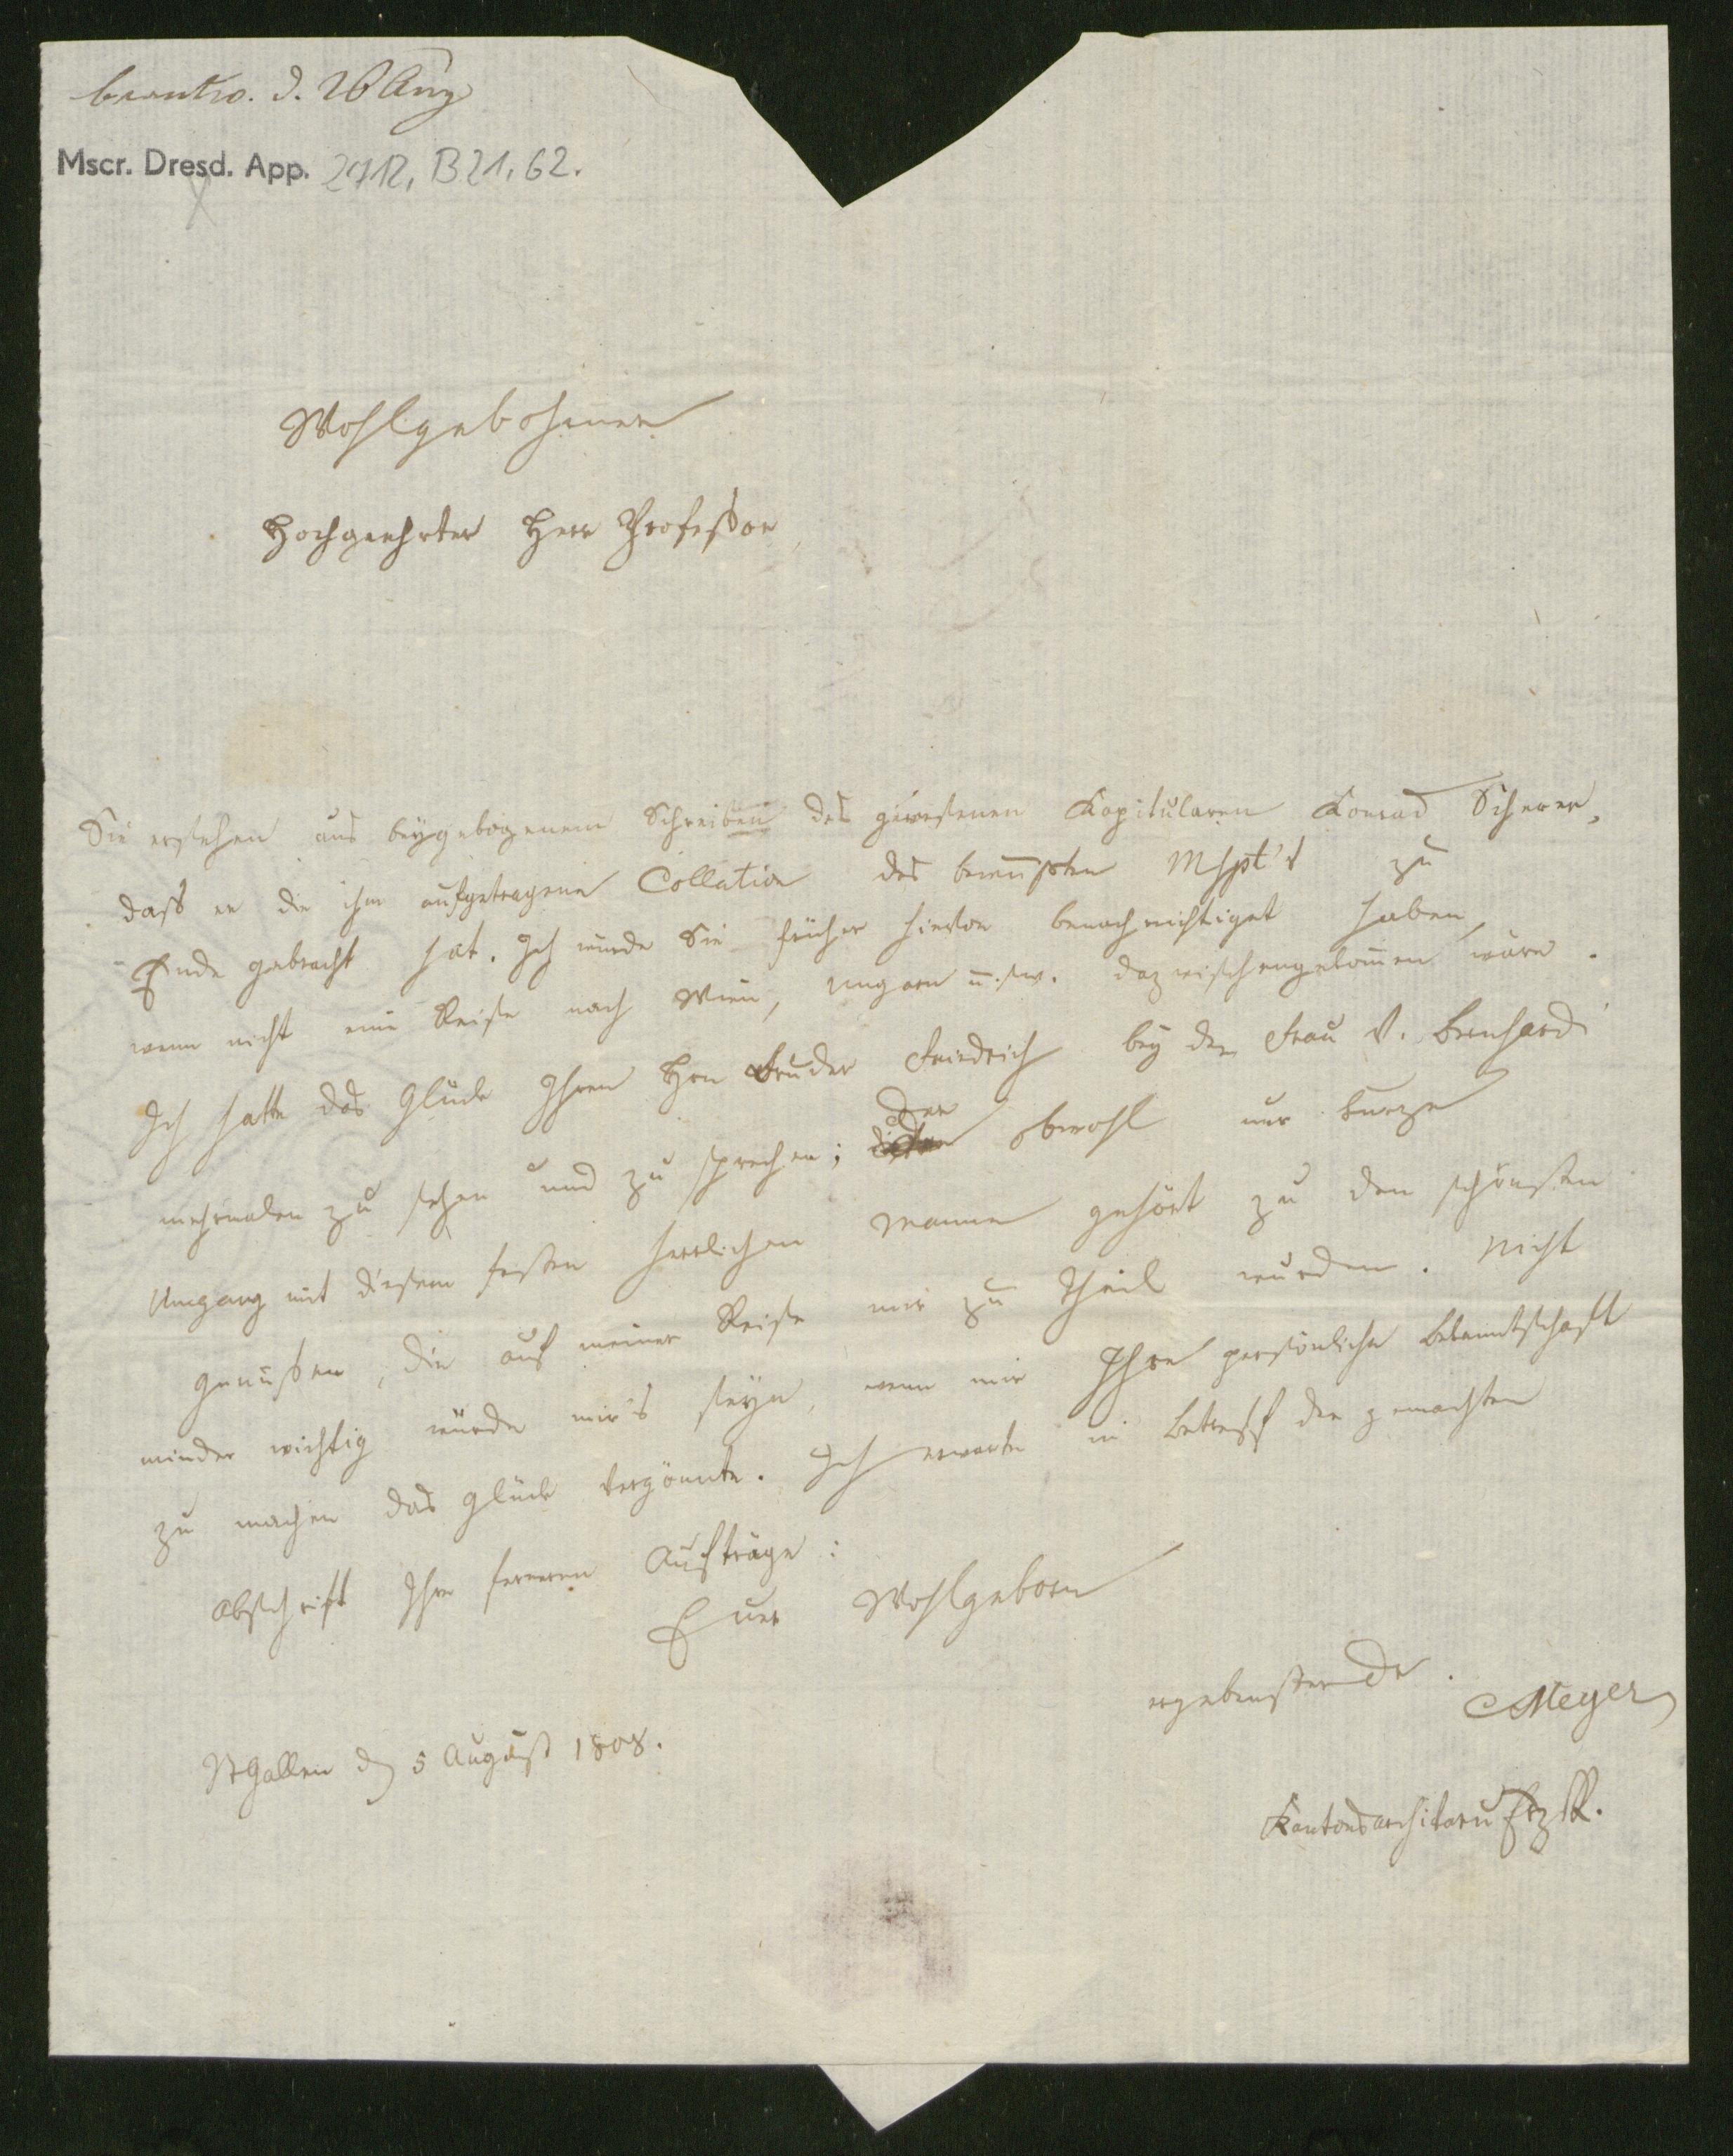 beantw. d. 26 Aug
Mscr. Dresd. App. 2712, B21, 62.
Wohlgebohrner
Hochgeehrter Herr Professor
Sie ersehen aus beygebogenem Schreiben des gewesenen Kapitularen Konrad Scherer,
daß er die ihm aufgetragene Collation des bewußten Mspt's zu
Ende gebracht hat. Ich würde Sie früher hievon benachrichtiget haben,
wenn nicht eine Reise nach Wien, Ungarn u. s. w. dazwischengekommen wäre.
Ich hatte das Glück Ihren Hrn Bruder Friedrich bey der Frau v. Bernhardi
mehrmalen zu sehen und zu sprechen; der obwohl nur kurze
Umgang mit diesem herrlichen Manne gehört zu den schönsten
Genüßen, die auf meiner Reise mir zu Theil wurden. Nicht
minder wichtig würde mir's seyn, wenn mir Ihre persönliche Bekanntschaft
zu machen das Glück vergönnte. Ich erwarte in Betreff der gemachten
Abschrift Ihre ferneren Aufträge:
Euer Wohlgeborn
ergebenster Dr.
Meyer
StGallen d 5 August 1808.
Kantonsarchivar u